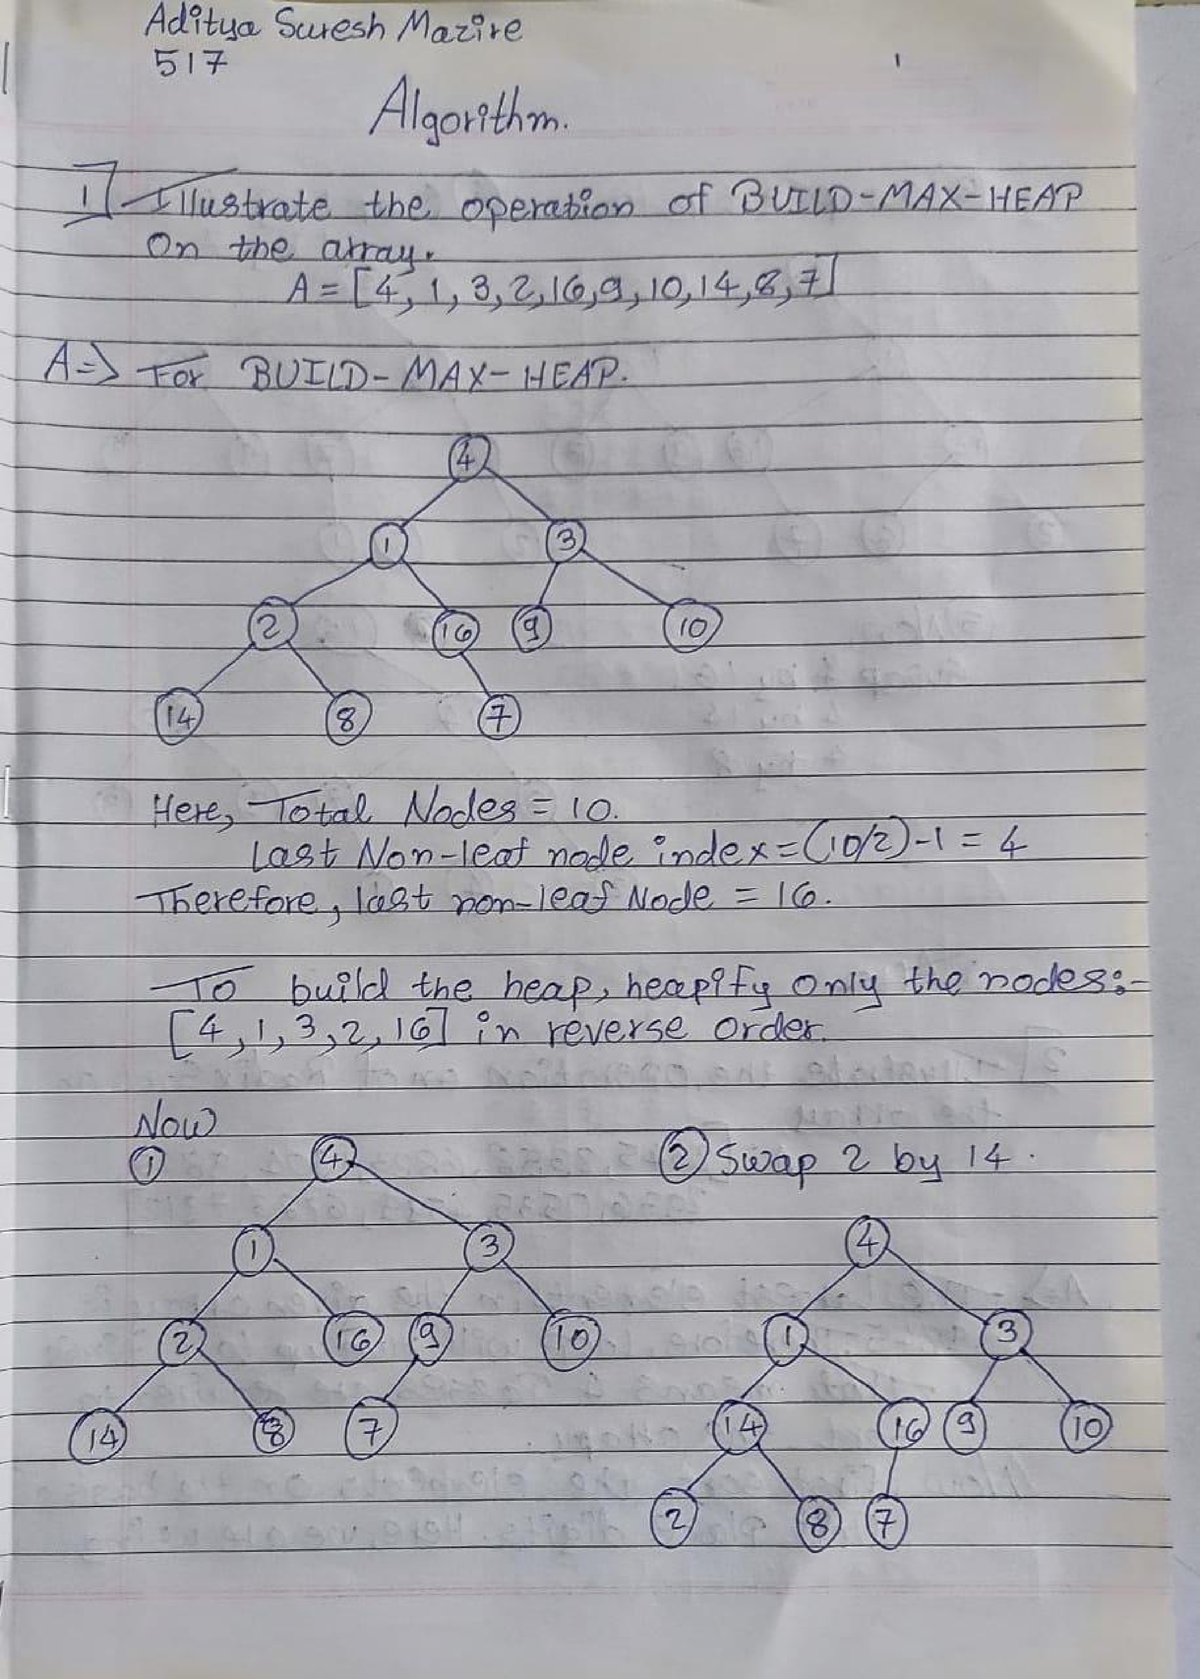 Aditya Suresh Mazire
517
Algorithm.
1] Illustrate the operation of BUILD-MAX-HEAP
on the array.
A = [4, 1, 3, 2, 16, 9, 10, 14, 8, 7]
A=> For BUILD-MAX-HEAP.
4
1 3
2 16 9 10
14 8 7
Here, Total Nodes = 10.
Last Non-leaf node index = (10/2)-1 = 4
Therefore, last non-leaf Node = 16.
To build the heap, heapify only the nodes:-
[4, 1, 3, 2, 16] in reverse order.
Now
①
4
1 3
2 16 9 10
14 8 7
② Swap 2 by 14.
4
1 3
14 16 9 10
2 8 7